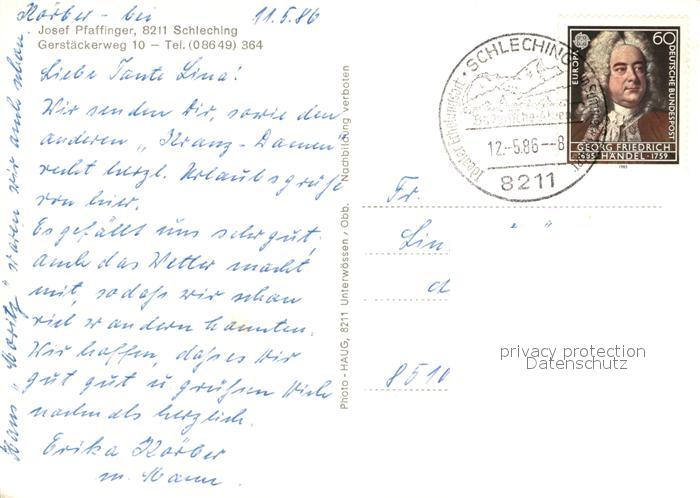 Körber - bei 11.5.86
Josef Pfaffinger, 8211 Schleching
Gerstäckerweg 10 — Tel. (0 86 49) 364
Liebe Tante Lina!
Wir senden Dir, sowie den
anderen "Kranz-Damen"
recht herzl. Urlaubsgrüße
von hier.
Es gefällt uns sehr gut,
auch das Wetter macht
mit, sodaß wir schon
viel wandern konnten.
Wir hoffen, daß es Dir
gut geht u grüßen Dich
nochmals herzlich.
Erika Körber
m. Mann.
"Moritz" waren wir auch schon
Photo - HAUG, 8211 Unterwössen / Obb. Nachbildung verboten
SCHLECHING
12.-5.86--8
8211
EUROPA
60
DEUTSCHE BUNDESPOST
GEORG FRIEDRICH
1685 HÄNDEL · 1759
1985
Fr.
Lin
d
8510
privacy protection
Datenschutz